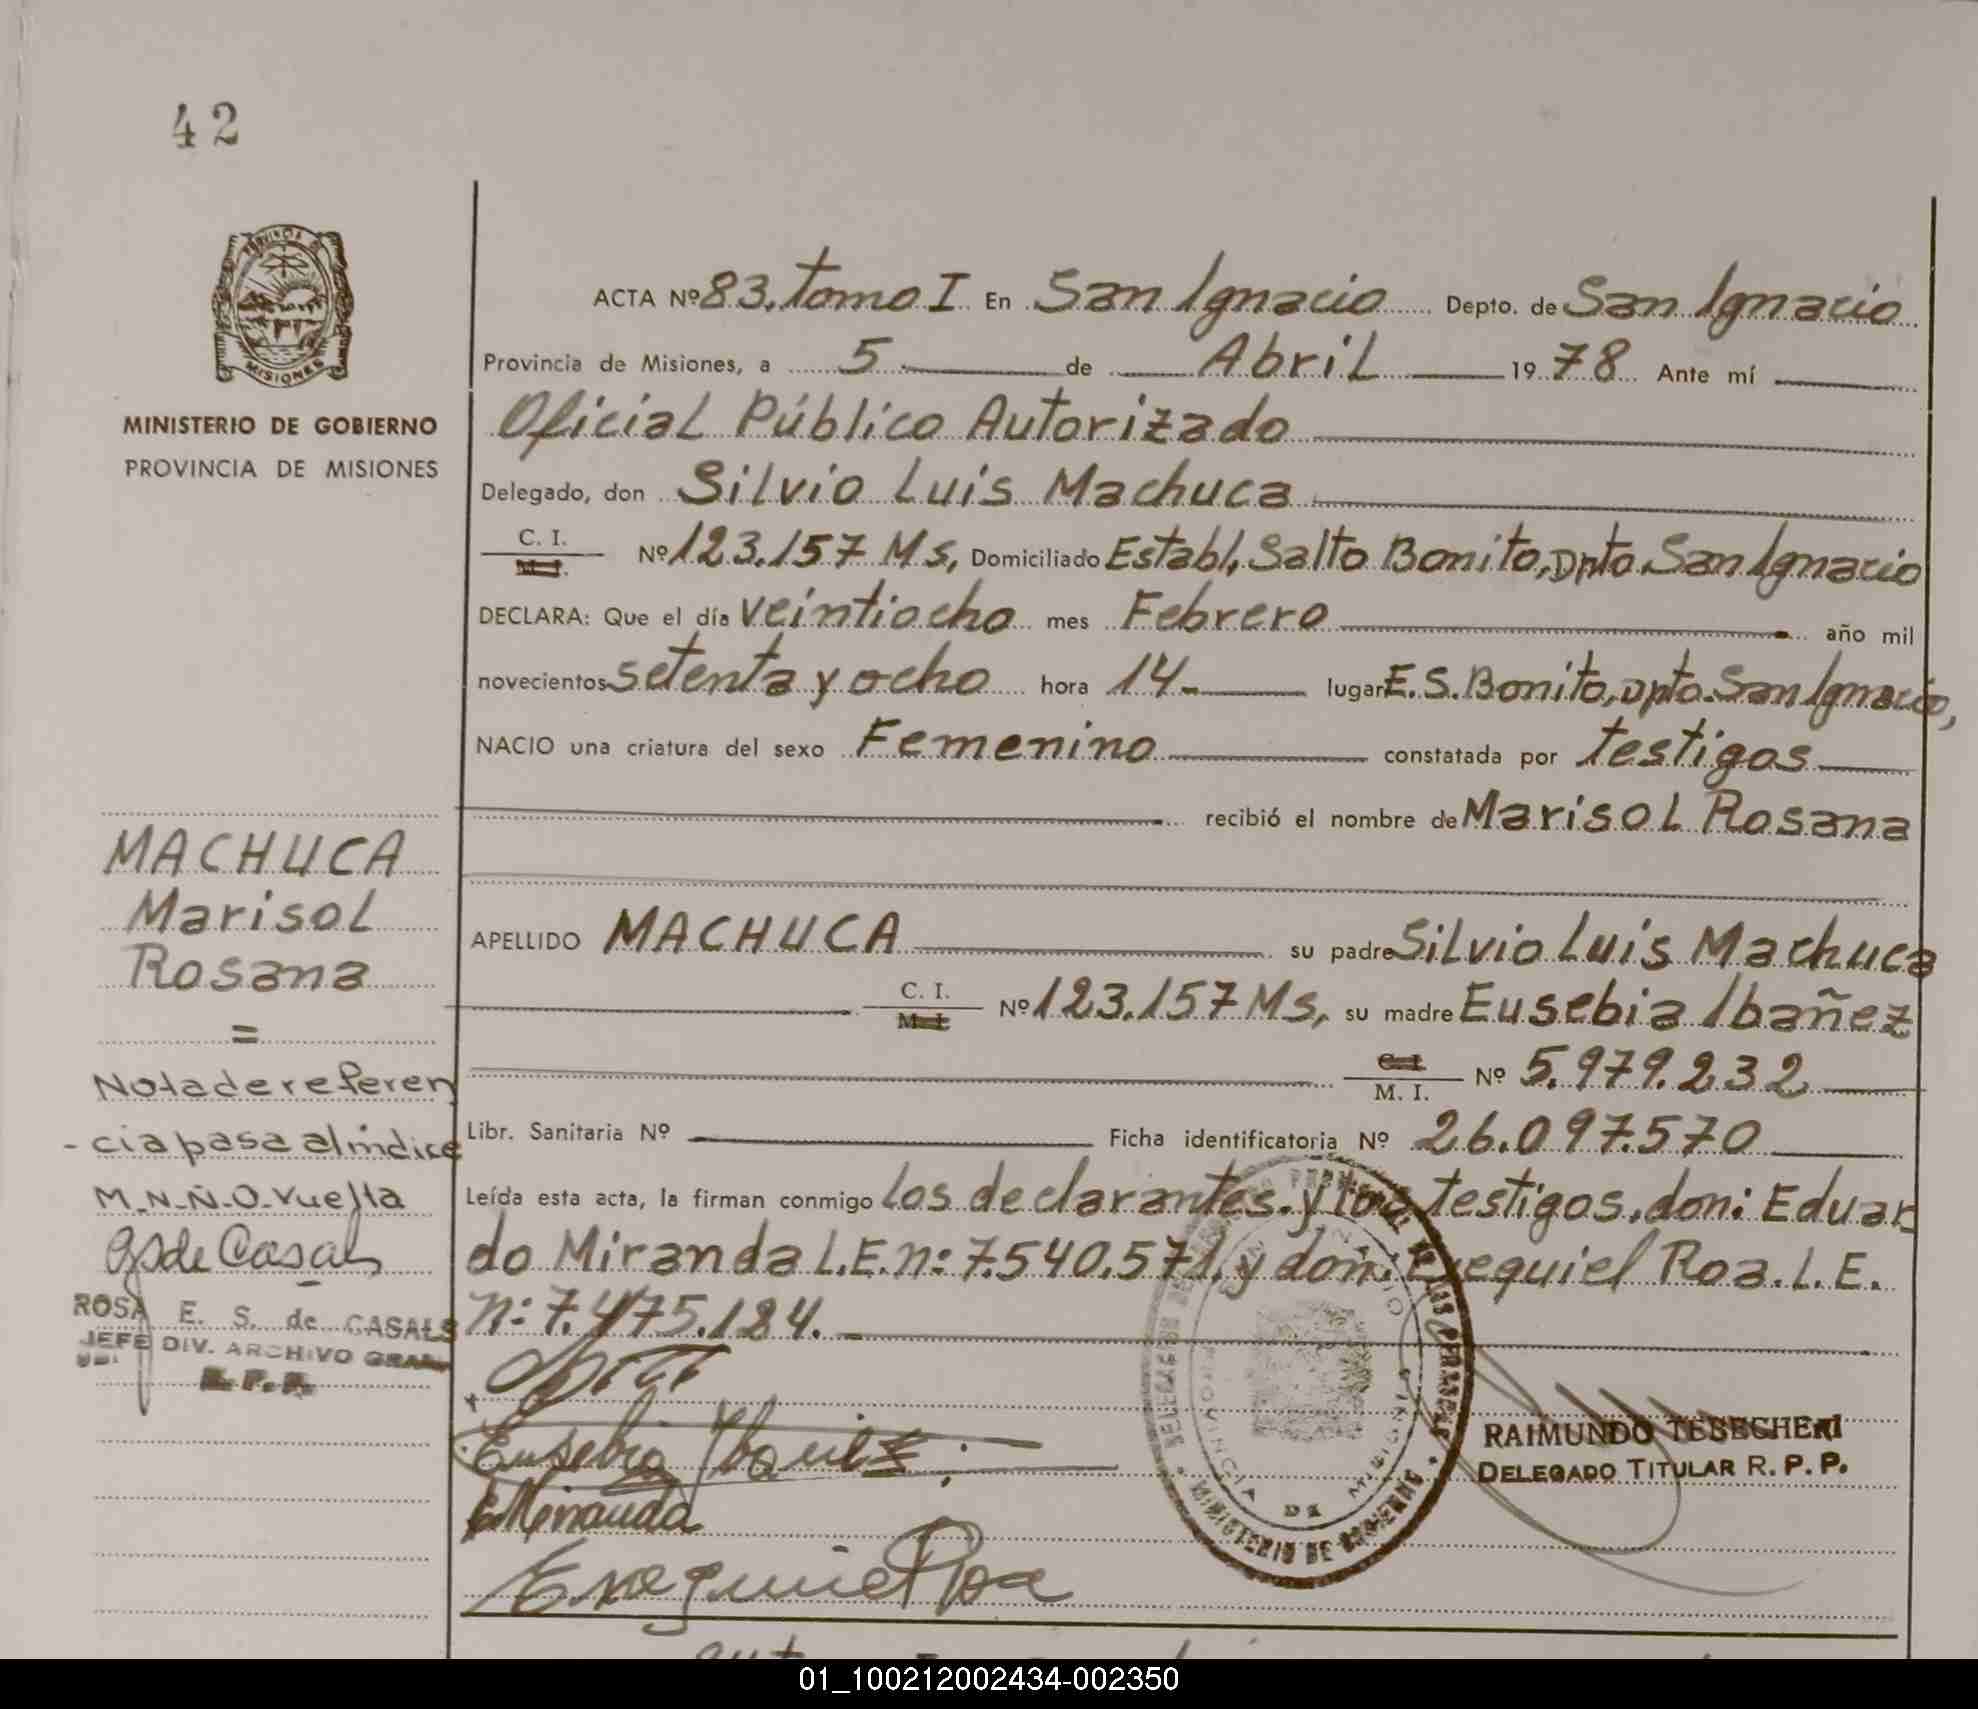 42
PROVINCIA DE
MISIONES
MINISTERIO DE GOBIERNO
PROVINCIA DE MISIONES
ACTA Nº 83. tomo I En San Ignacio Depto. de San Ignacio
Provincia de Misiones, a 5 de Abril 1978 Ante mí
Oficial Público Autorizado
Delegado, don Silvio Luis Machuca
C. I.
M. I. Nº 123.157 Ms, Domiciliado Establ. Salto Bonito, Dpto. San Ignacio
DECLARA: Que el día veintiocho mes Febrero año mil
novecientos setenta y ocho hora 14.- lugar E. S. Bonito, Dpto. San Ignacio,
NACIO una criatura del sexo Femenino constatada por testigos
recibió el nombre de Marisol Rosana
APELLIDO MACHUCA su padre Silvio Luis Machuca
C. I.
M. I. Nº 123.157 Ms, su madre Eusebia Ibañez
C. I.
M. I. Nº 5.979.232
Libr. Sanitaria Nº Ficha identificatoria Nº 26.097.570
Leída esta acta, la firman conmigo los declarantes. y los testigos, don: Eduar
do Miranda L.E.n: 7.540.571. y don: Exequiel Roa. L. E.
n: 7.475.184.
Eusebia Ibañez
EMiranda
Exequiel Roa
MACHUCA
Marisol
Rosana
=
Nota de referen
-cia pasa al indice
M-N-Ñ-O-Vuelta
RSde Casals
ROSA E. S. de CASALS
JEFE DIV. ARCHIVO GRAL
R. P. P.
PROVINCIA DE MISIONES
MINISTERIO DE GOBIERNO
RAIMUNDO TESECHENI
DELEGADO TITULAR R. P. P.
01_100212002434-002350